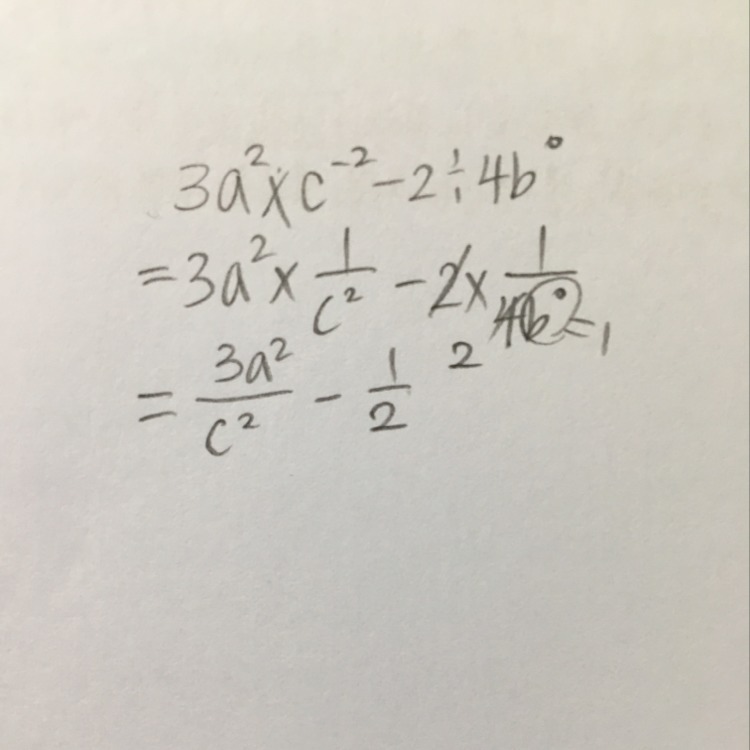 3a²×c⁻²-2÷4b⁰
=3a²×1/c²-2×1/4b⁰=1
2
=3a²/c²-1/2